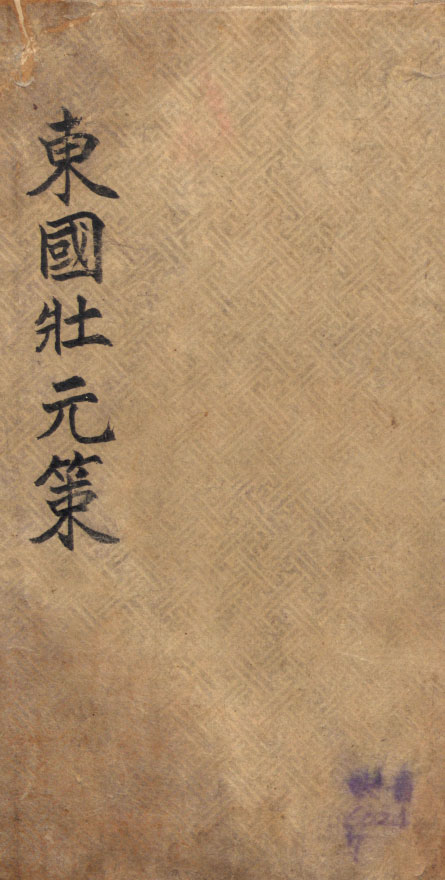 東國壯元策